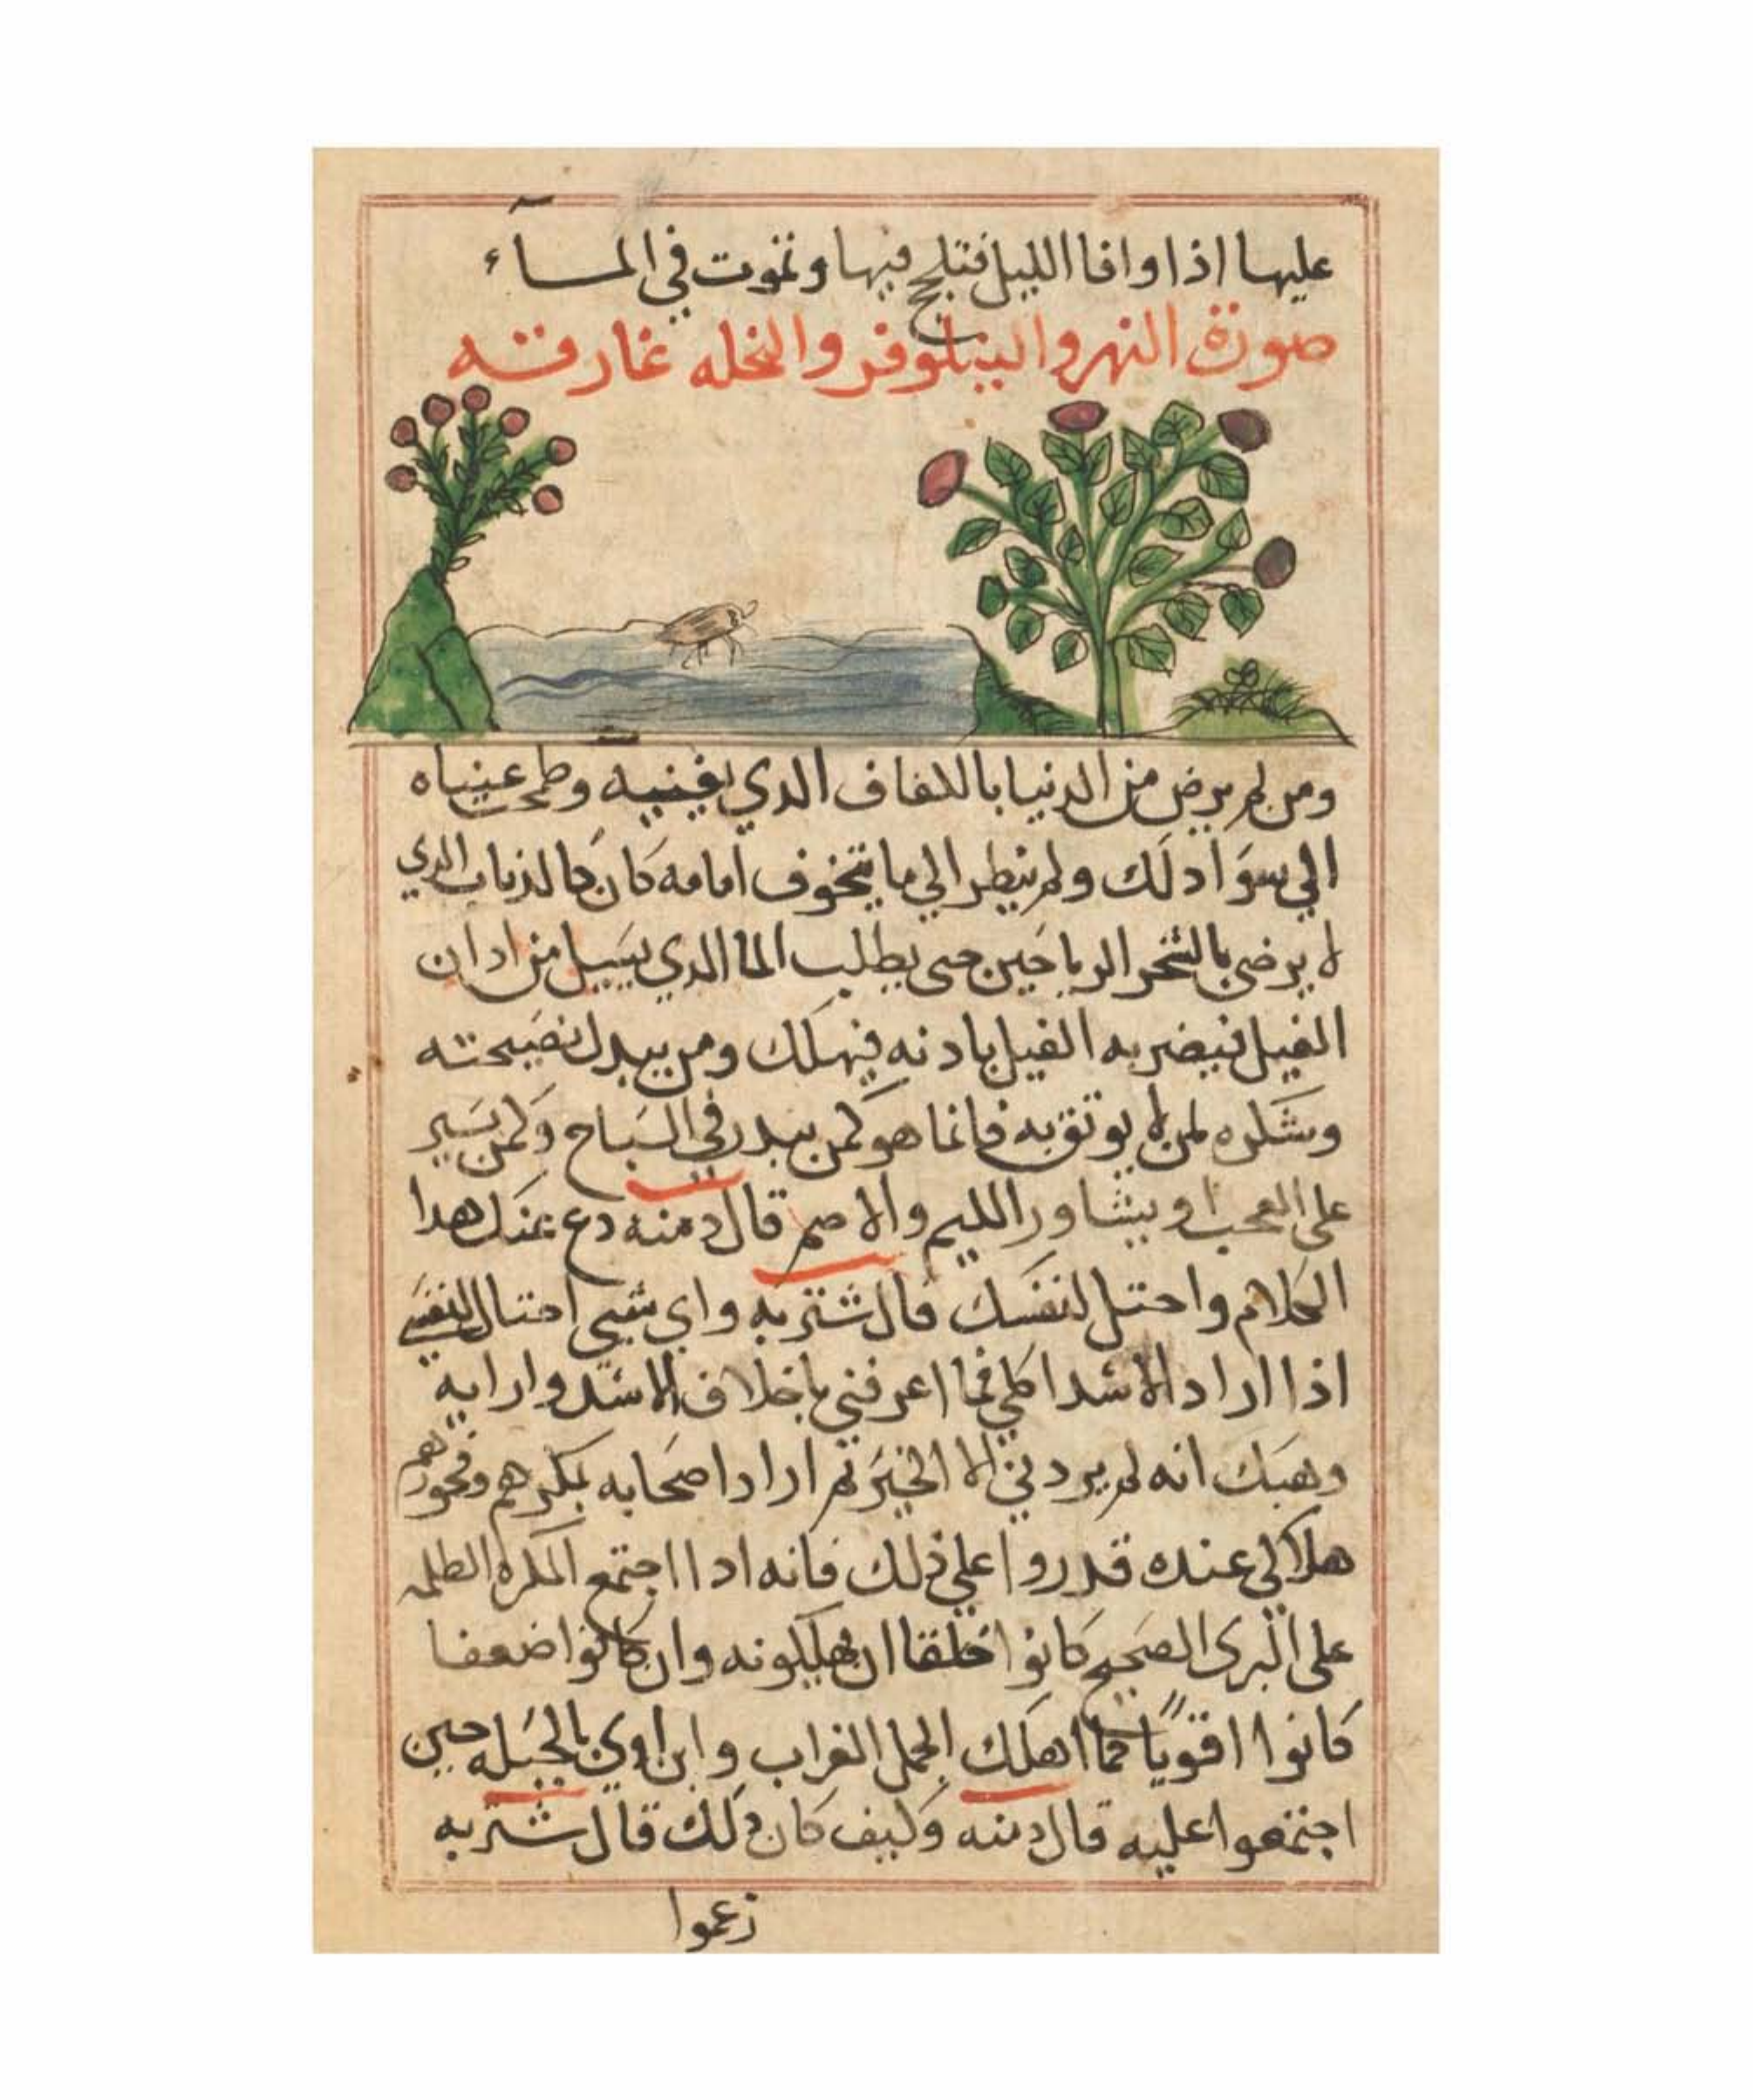 عليها اذا وافا الليل فتلج فيها وتموت في المآء
صورة النهر والينلوفر والنحله غارقه
ومن لم يرض من الدنيا بالكفاف الدي يغنيه وطمحت عيناه
الي سوا دلك ولم ينظر الي ما يتخوف امامه كان كالذباب الدي
لا يرضي بالشجر الرياحين حتى يطلب الما الدي يسيل من ادان
الفيل فيضربه الفيل بادنه فيهلك ومن يبدل نصيحته
وشكره لمن لا يوثق به فانما هو كمن يبدر في السباح وكمن يسير
على العجب او يشاور الليم والاصم قال دمنه دع عنك هدا
الكلام واحتل لنفسك قال شتربه واي شيى احتال لنفسي
اذا اراد الاسد اكلي فما اعرفني باخلاف الاسد وارايه
وهبك انه لم يرد بي الا الخير ثم اراد اصحابه بمكرهم وفجورهم
هلاكي عنده قدروا علي ذلك فانه ادا اجتمع المكره الظلمه
على البرى الصحيح كانوا خلقا ان يهلكونه وان كانوا ضعفا
كانوا اقويا كما اهلك الجمل الغراب وابن اوي بالحيله حين
اجتمعوا عليه قال دمنه وكيف كان دلك قال شتربه
زعموا